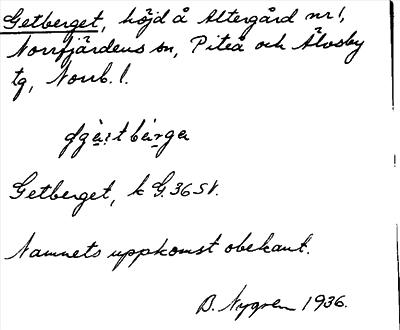 Getberget, höjd å Altergård nr 1,
Norrfjärdens sn, Piteå och Älvsby
tg, Norrb. l.
Getberget, k G. 36 SV.
Namnets uppkomst obekant.
B. Nygren 1936.